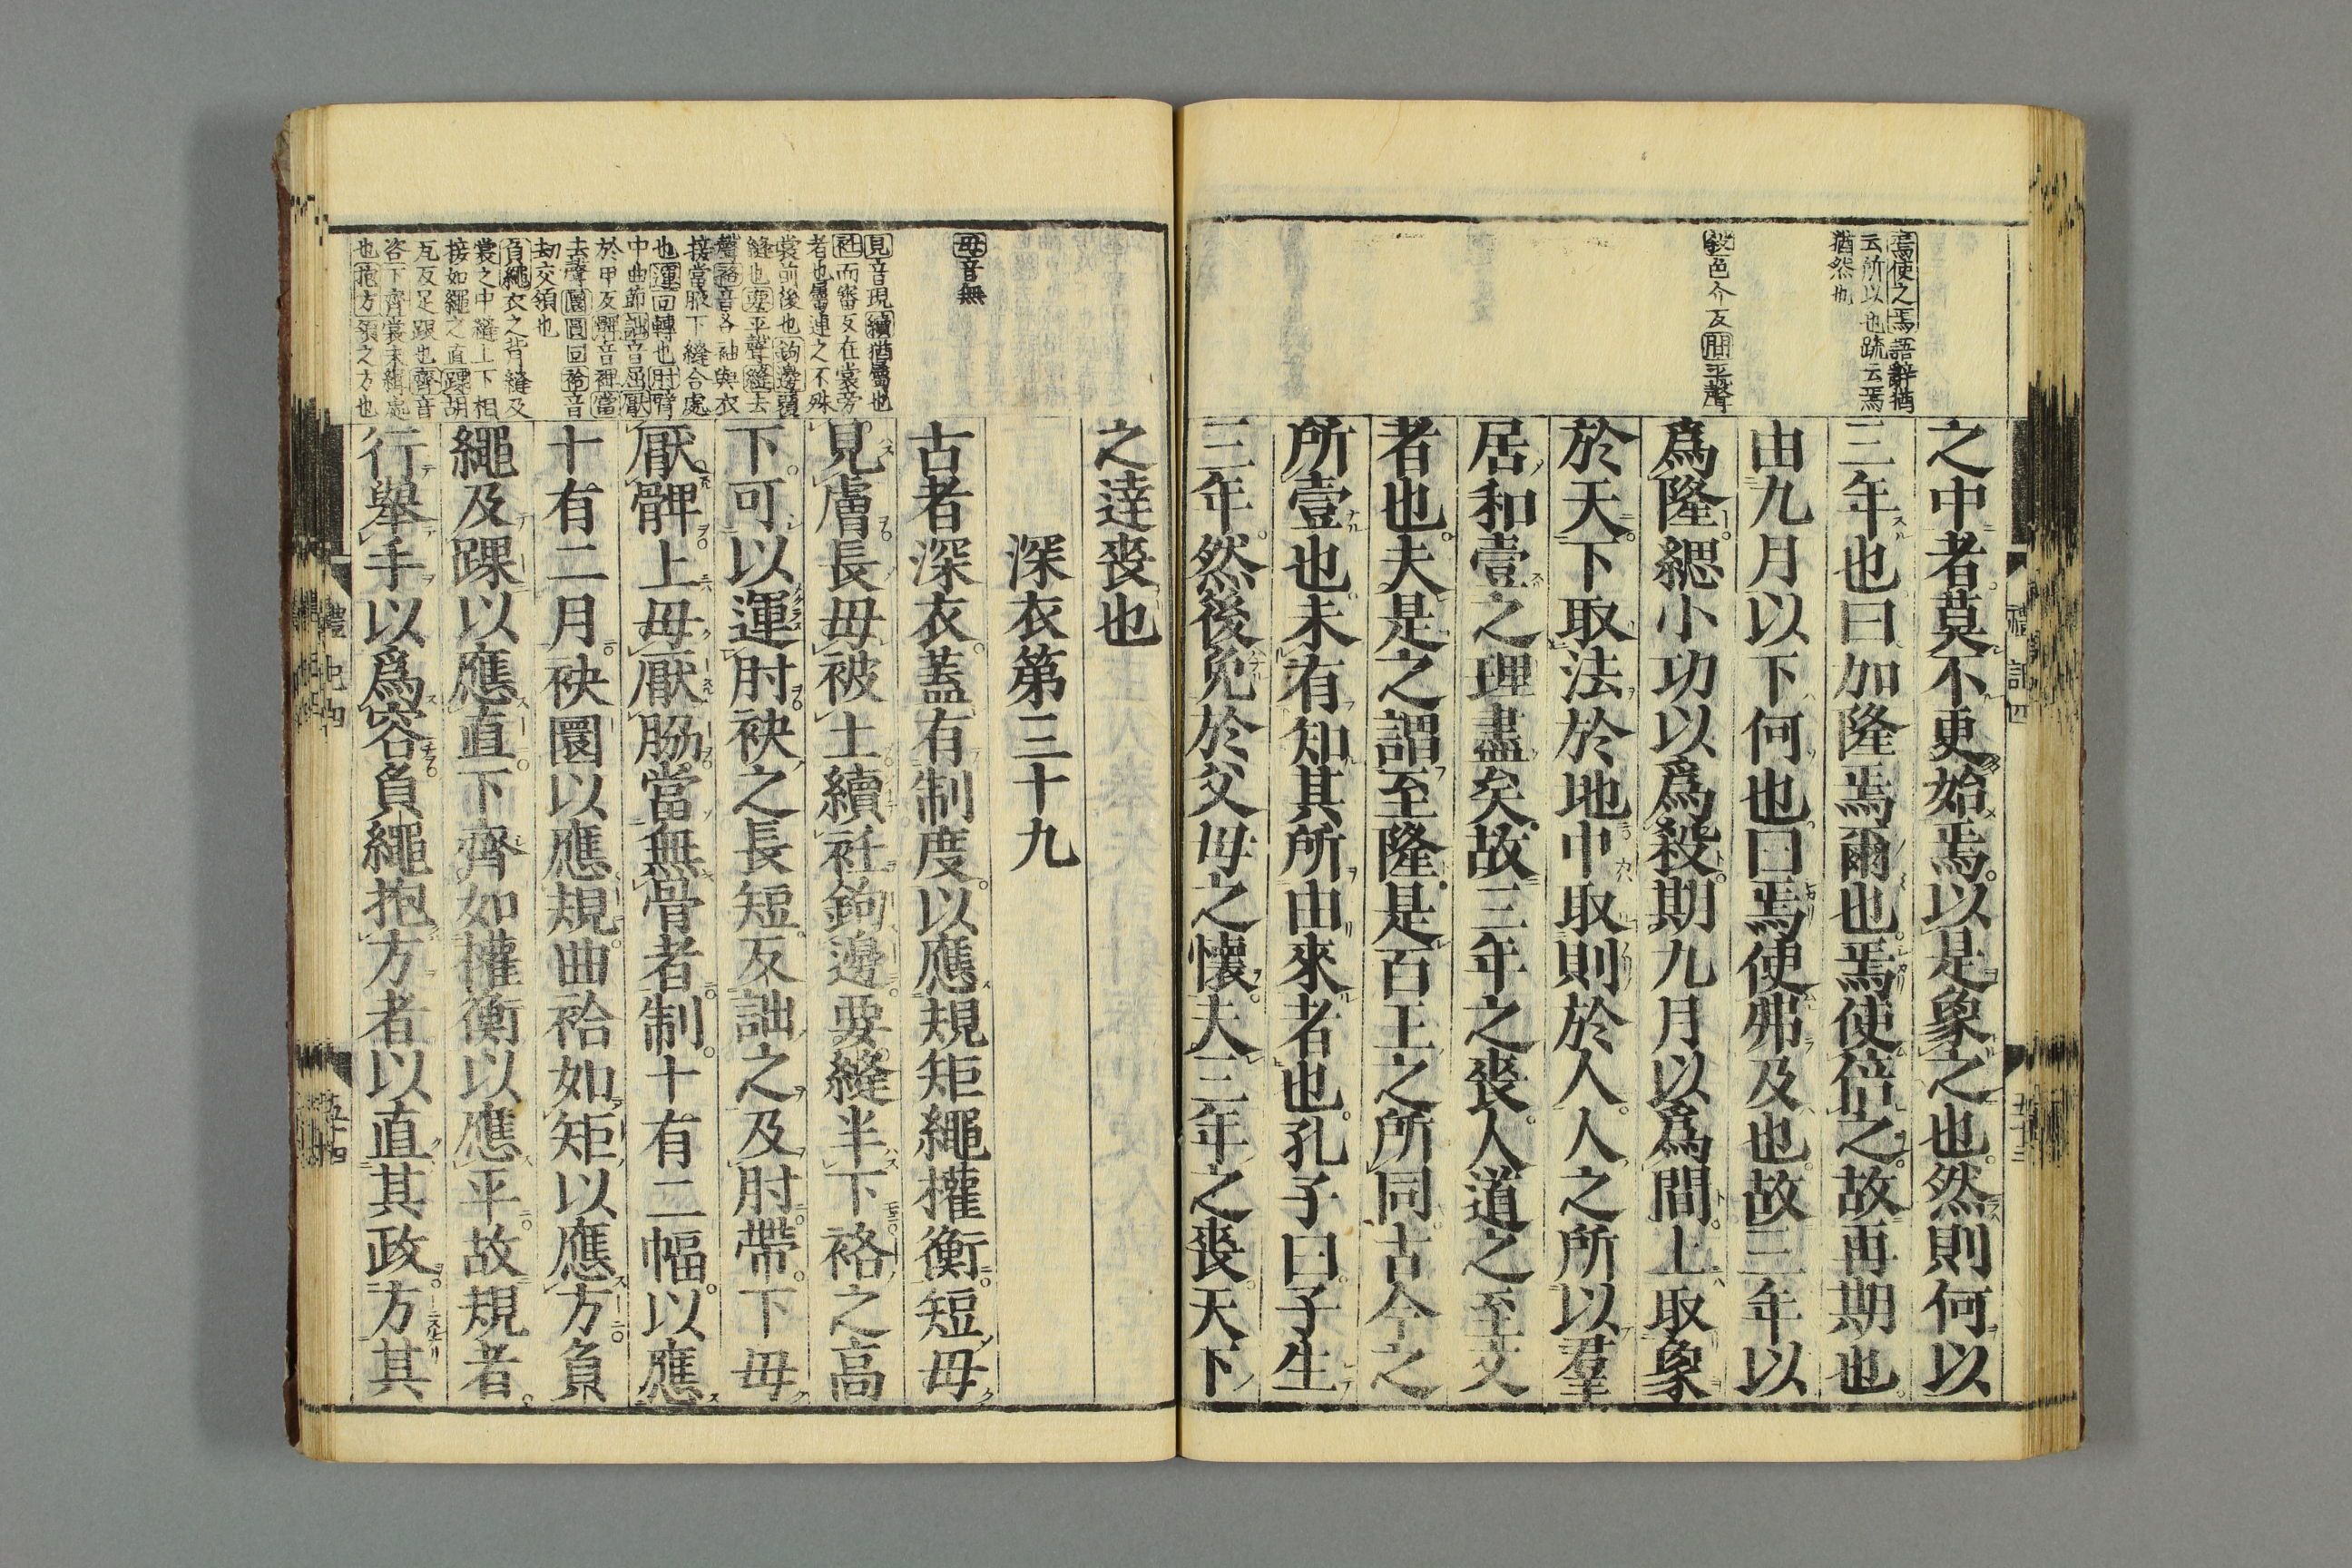 之中者莫不更始焉以是象之也然則何以
三年也曰加隆焉爾也焉使倍之故再期也
由九月以下何也曰焉使弗及也故三年以
爲隆緦小功以爲殺期九月以爲間上取象
於天下取法於地中取則於人人之所以羣
居和壹之理盡矣故三年之喪人道之至文
者也夫是之謂至隆是百王之所同古今之
所壹也未有知其所由來者也孔子曰子生
三年然後免於父母之懷夫三年之喪天下
焉使之焉語辭猶
云所以也疏云焉
猶然也
殺色介反間平聲
禮記四
五十三
之達喪也
深衣第三十九
古者深衣蓋有制度以應規矩繩權衡短毋
見膚長毋被土續衽鉤邊要縫半下袼之高
下可以運肘袂之長短反詘之及肘帶下毋
厭髀上毋厭脇當無骨者制十有二幅以應
十有二月袂圜以應規曲袷如矩以應方負
繩及踝以應直下齊如權衡以應平故規者
行舉手以爲容負繩抱方者以直其政方其
毋音無
見音現續猶屬也
衽而審反在裳旁
者也屬連之不殊
裳前後也鉤邊頭
縫也要平聲縫去
聲袼音各袖與衣
接當腋下縫合處
也運回轉也肘臂
中曲節詘音屈厭
於甲反髀音裨當
去聲圜圓同袷音
刧交領也
負繩衣之背縫及
裳之中縫上下相
接如繩之直踝胡
瓦反足跟也齊音
咨下齊裳末緝處
也抱方領之方也
禮記四
五十四